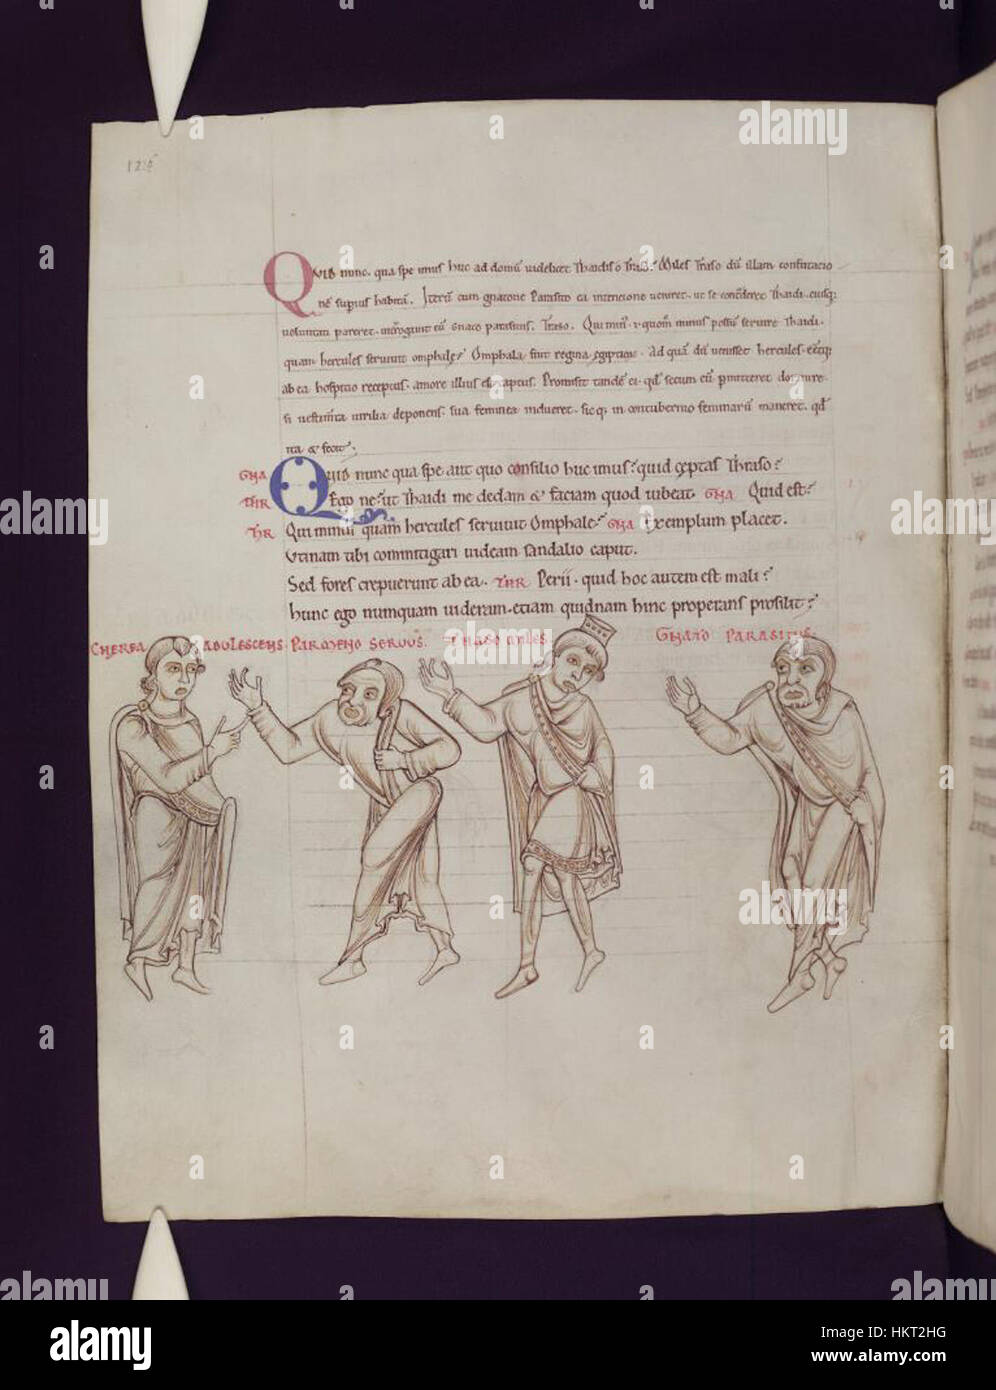 Quid nunc. qua spe imus huc ad domū uidelicet Thaidis ò Traso? Miles Traso dū illam confutacio
nē supius habitā. Iterū cum gnatone Parasito ea intencione ueniret. ut se concederet Thaidi. eiusq;
uoluntati pareret. int̄rogunt eū Gnaco parasitus. Traso. Qui min'. & quom̄ minus possū seruire Thaidi.
quam hercules seruiuit omphale? Omphala fuit regina
Ad quā dū uenisset hercules
ab ea hospitio receptus. amore illius captus. Promisit tandē ei. qd' secum eū pmitteret dormire.
si uestim̄ta uirilia deponens. sua feminea indueret. sicq; in contubernio feminarū maneret. qd'
ita & fecit.
GNA Quid nunc qua spe aut quo consilio huc imus? quid cęptas Thraso?
THR Ego ne? ut Thaidi me dedam & faciam quod iubeat. GNA Quid est?
THR Qui minus quam hercules seruiuit Omphale? GNA Exemplum placet.
Vtinam tibi commitigari uideam sandalio caput.
Sed fores crepuerunt ab ea. THR Perii. quid hoc autem est mali?
hunc ego numquam uideram. etiam quidnam hinc properans prosilit?
CHEREA ADULESCENS. PARMENO SERVUS. THRASO MILES. GNATO PARASITUS.
alamy
Image ID: HKT2HG
www.alamy.com